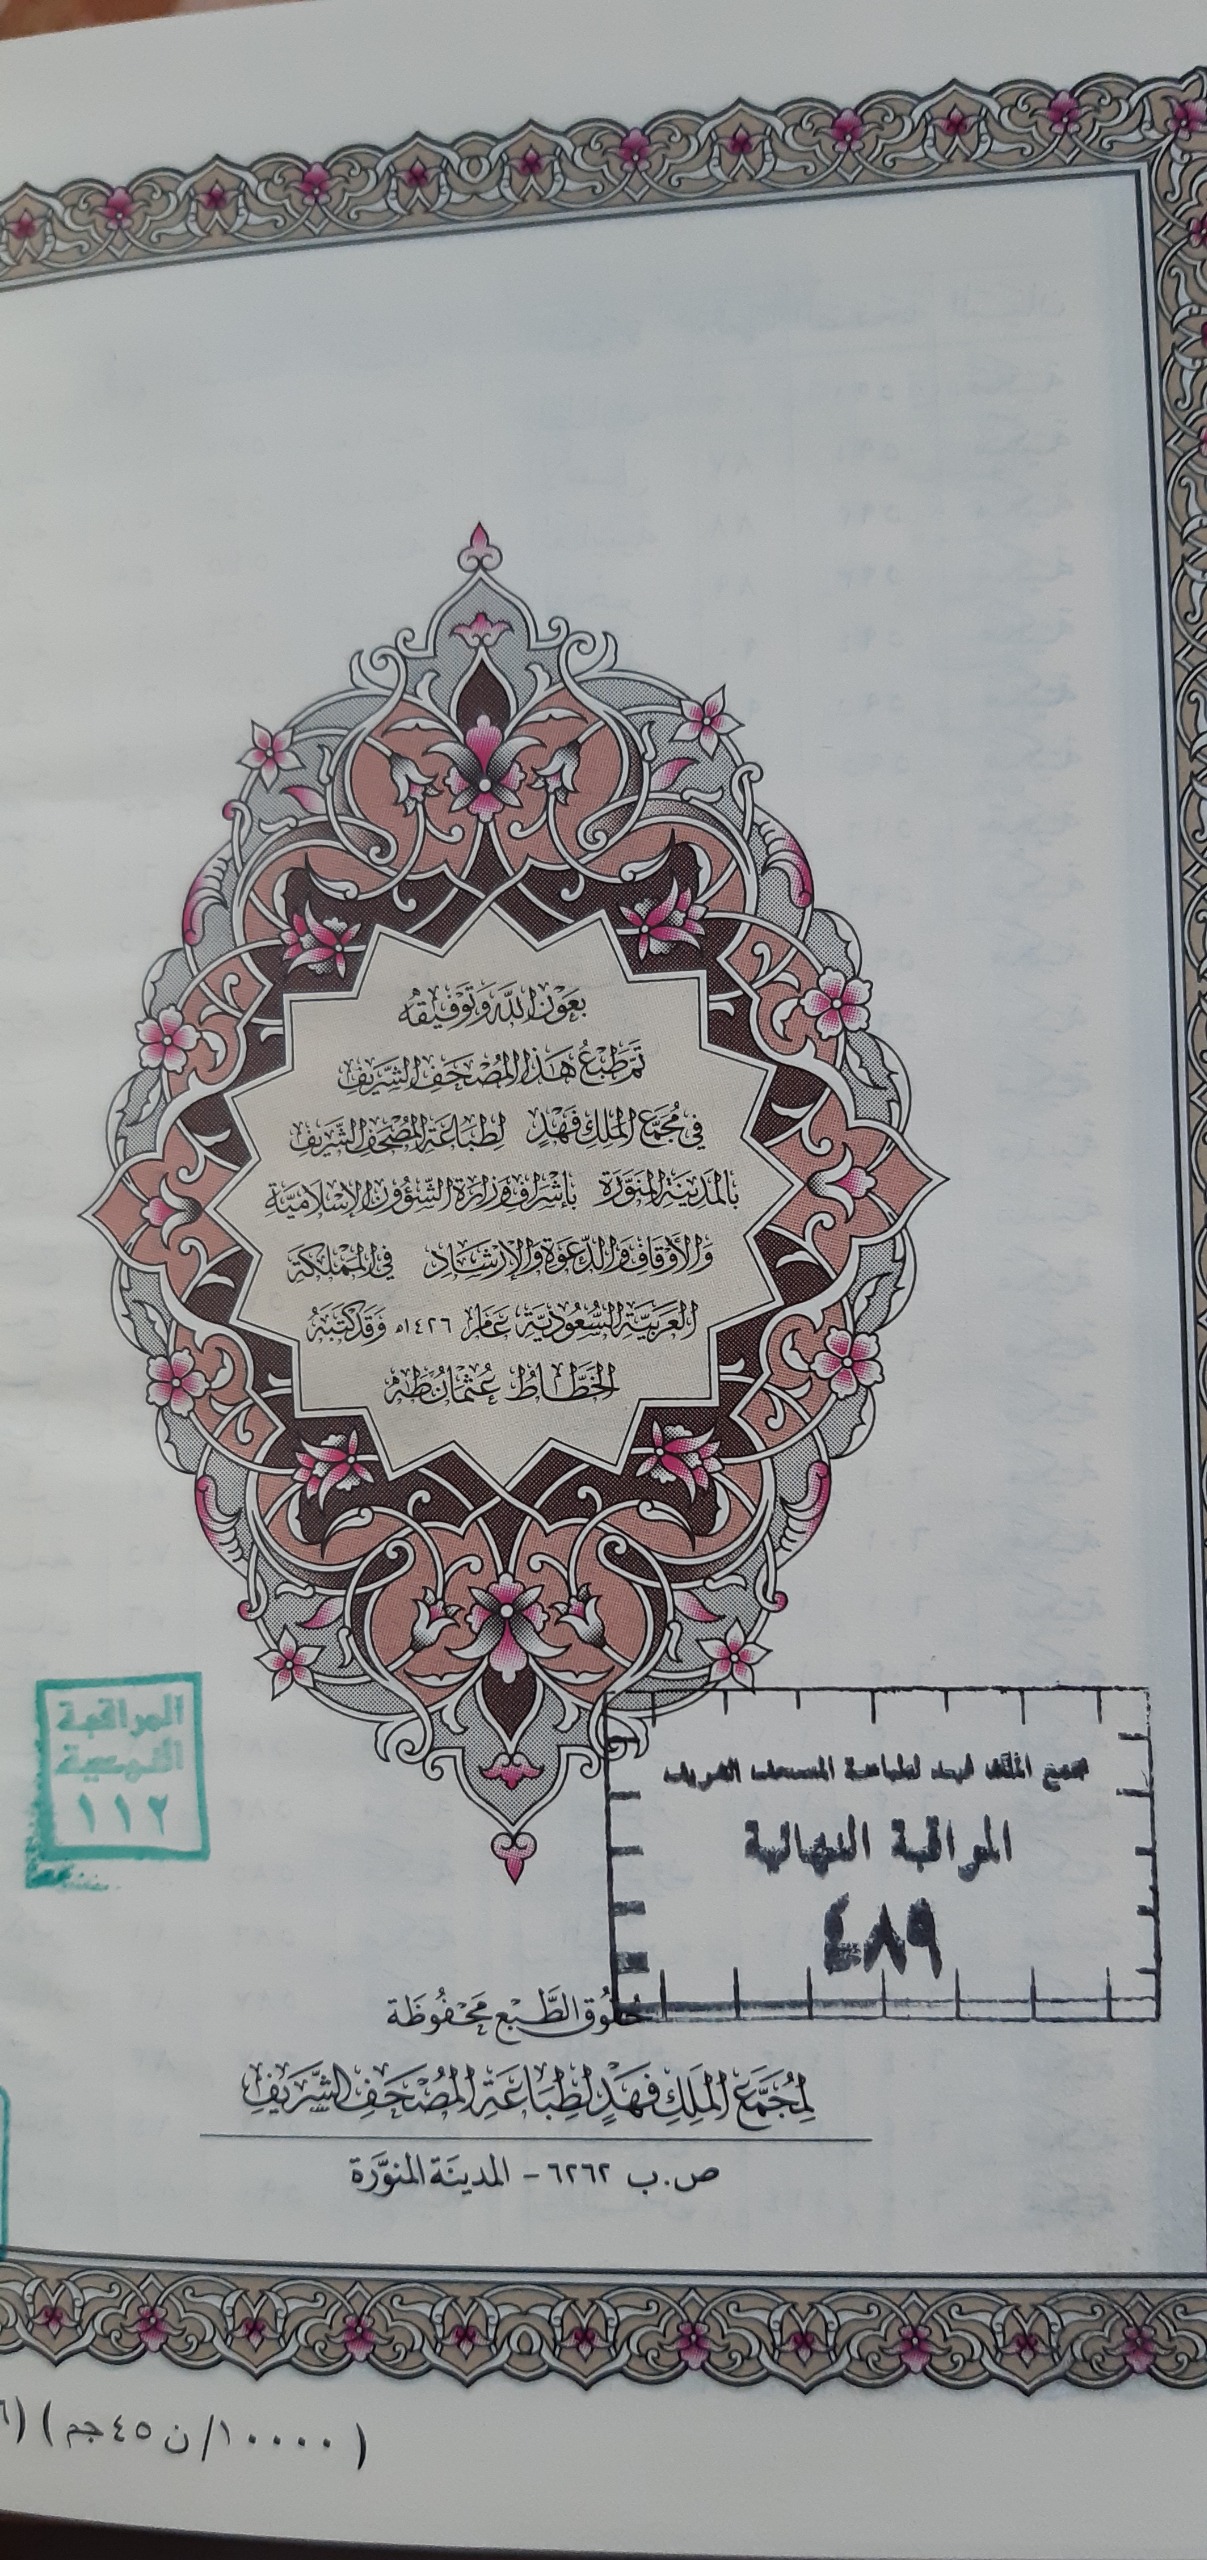 بِعَوْنِ اللَّهِ وَتَوْفِيقِهِ
تَمَّ طَبْعُ هَذَا المُصْحَفِ الشَّرِيفِ
فِي مُجَمَّعِ المَلِكِ فَهْدٍ لِطِبَاعَةِ المُصْحَفِ الشَّرِيفِ
بِالمَدِينَةِ المُنَوَّرَةِ بِإِشْرَافِ وَزَارَةِ الشُّؤُونِ الإِسْلَامِيَّةِ
وَالأَوْقَافِ وَالدَّعْوَةِ وَالإِرْشَادِ فِي المَمْلَكَةِ
العَرَبِيَّةِ السُّعُودِيَّةِ عَامَ ١٤٢٦ه وَقَدْ كَتَبَهُ
الخَطَّاطُ عُثْمَانُ طٰهٰ
المراقبة
١١٢
مجمع الملك فهد لطباعة المصحف الشريف
المراقبة النهائية
٤٨٩
حُقُوقُ الطَّبْعِ مَحْفُوظَة
لِمُجَمَّعِ المَلِكِ فَهْدٍ لِطِبَاعَةِ المُصْحَفِ الشَّرِيفِ
ص.ب ٦٢٦٢ - المدينَة المنوَّرة
(١٠٠٠٠/ن ٤٥جم)